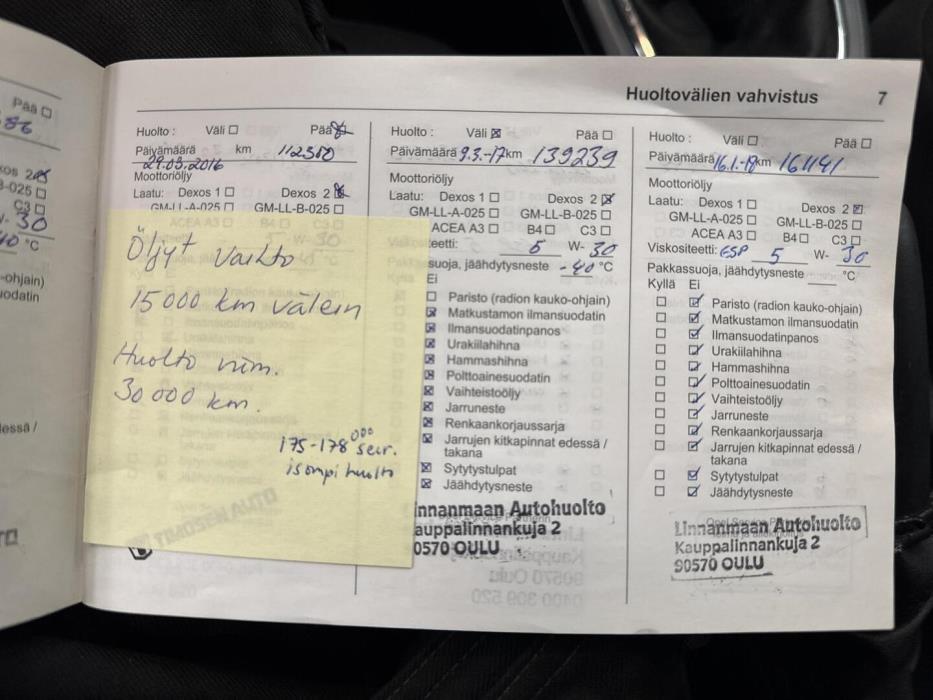 Pää ☐
Huoltovälien vahvistus 7
Huolto : Väli ☐ Pää ☒
Päivämäärä km 112310
29.03.2016
Moottoriöljy
Laatu: Dexos 1 ☐ Dexos 2 ☒
GM-LL-A-025 ☐ GM-LL-B-025 ☐
ACEA A3 ☐ B4 ☐ C3 ☐
Öljyt vaihto
15000 km välein
Huolto näm.
30 000 km.
175-178000 seur.
isompi huolto
Huolto : Väli ☒ Pää ☐
Päivämäärä 9.3.-17 km 139239
Moottoriöljy
Laatu: Dexos 1 ☐ Dexos 2 ☒
GM-LL-A-025 ☐ GM-LL-B-025 ☐
ACEA A3 ☐ B4 ☐ C3 ☐
teetti: 5 W- 30
suoja, jäähdytysneste -40 °C
Ei
☐ Paristo (radion kauko-ohjain)
☒ Matkustamon ilmansuodatin
☒ Ilmansuodatinpanos
☒ Urakiilahihna
☒ Hammashihna
☒ Polttoainesuodatin
☒ Vaihteistoöljy
☒ Jarruneste
☒ Renkaankorjaussarja
☒ Jarrujen kitkapinnat edessä /
takana
☒ Sytytystulpat
☒ Jäähdytysneste
innanmaan Autohuolto
auppalinnankuja 2
0570 OULU
Huolto : Väli ☐ Pää ☐
Päivämäärä 16.1.-18 km 161141
Moottoriöljy
Laatu: Dexos 1 ☐ Dexos 2 ☒
GM-LL-A-025 ☐ GM-LL-B-025 ☐
ACEA A3 ☐ B4 ☐ C3 ☐
Viskositeetti: ESP 5 W- 30
Pakkassuoja, jäähdytysneste °C
Kyllä Ei
☐ ☑ Paristo (radion kauko-ohjain)
☐ ☑ Matkustamon ilmansuodatin
☐ ☑ Ilmansuodatinpanos
☐ ☑ Urakiilahihna
☐ ☑ Hammashihna
☐ ☑ Polttoainesuodatin
☐ ☑ Vaihteistoöljy
☐ ☑ Jarruneste
☐ ☑ Renkaankorjaussarja
☐ ☑ Jarrujen kitkapinnat edessä /
takana
☐ ☑ Sytytystulpat
☐ ☑ Jäähdytysneste
Linnanmaan Autohuolto
Kauppalinnankuja 2
90570 OULU